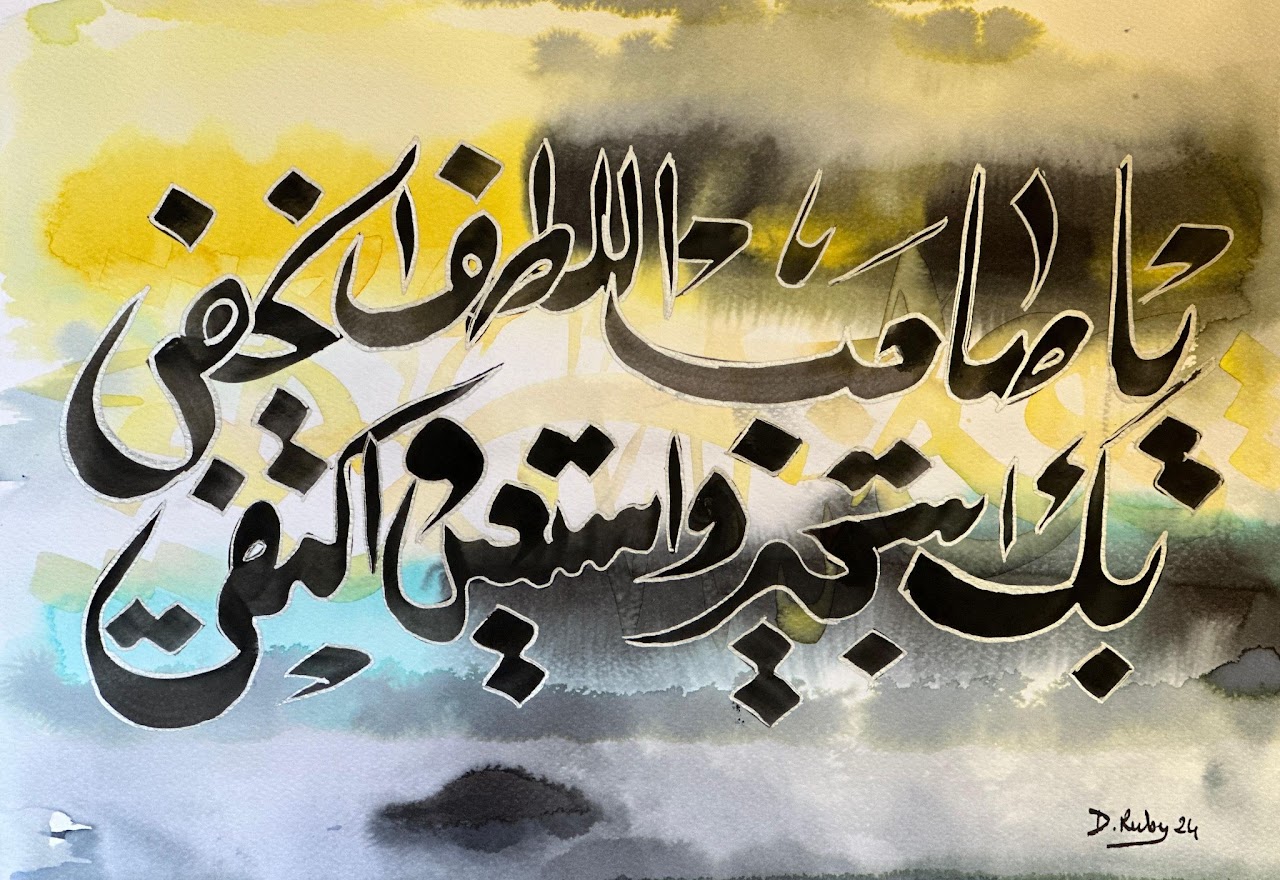 يا صاحب اللطف الخفي
بك استجير واستعين اكتفي
D. Ruby 24